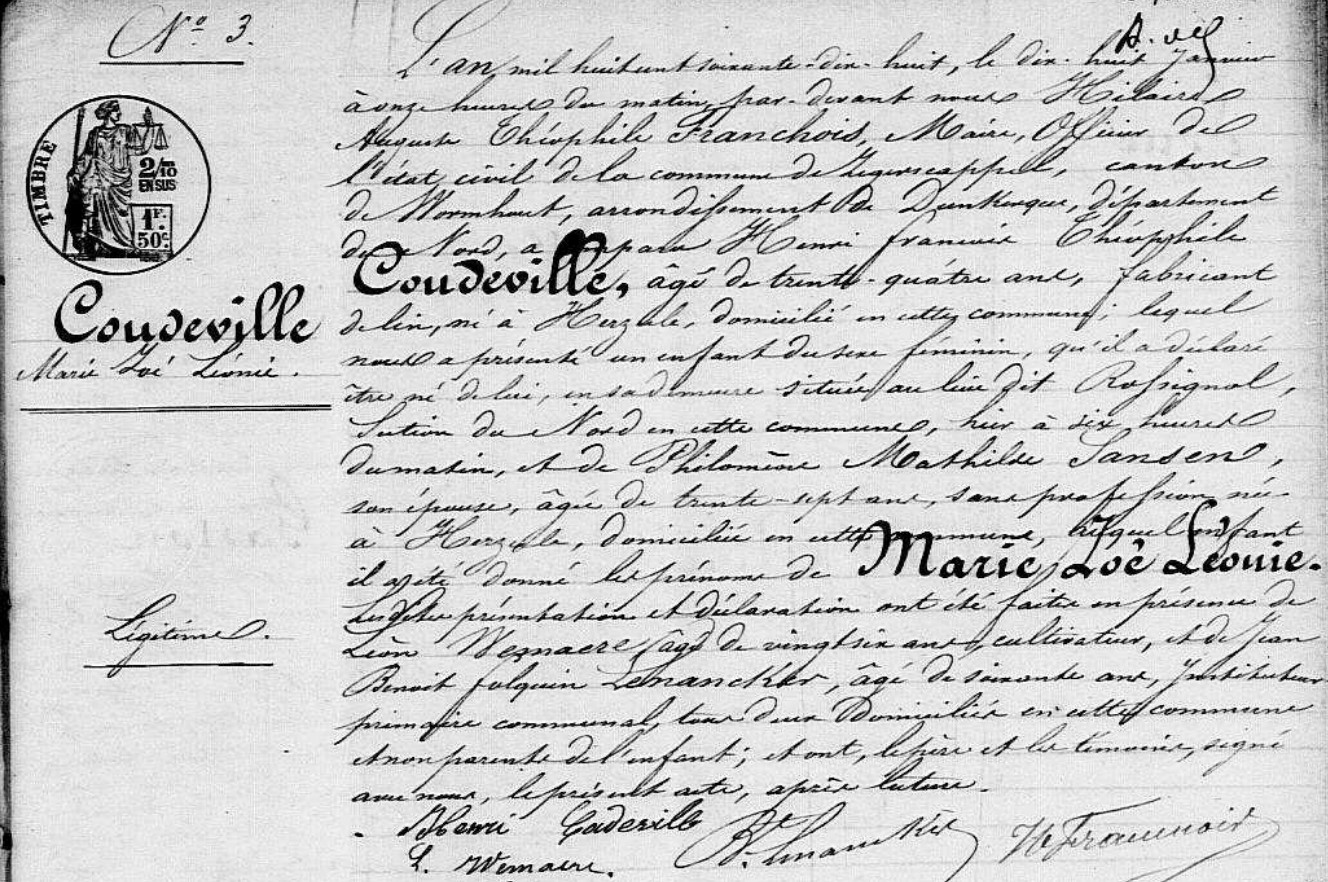 N° 3.
TIMBRE
2/10 EN SUS
1F. 50c.
Coudeville
Marie Zoé Léonie.
Légitime.
L'an mil huit cent soixante-dix-huit, le dix-huit Janvier
à onze heures du matin, par-devant nous Hilaire
Auguste Théophile Franchois, Maire, Officier de
l'état civil de la commune de Zegerscappel, canton
de Wormhout, arrondissement de Dunkerque, département
du Nord, a comparu Henri francois Théophile
Coudeville, âgé de trente-quatre ans, fabricant
de lin, né à Herzeele, domicilié en cette commune; lequel
nous a présenté un enfant du sexe féminin, qu'il a déclaré
être né de lui, en sa demeure située au lieu dit Rossignol,
Section du Nord en cette commune, hier à six heures
du matin, et de Philomène Mathilde Jansen,
son épouse, âgée de trente-sept ans, sans profession, née
à Herzeele, domiciliée en cette commune, auquel enfant
il a été donné les prénoms de Marie Zoé Léonie.
Lesdites présentation et déclaration ont été faites en présence de
Léon Wemaere, âgé de vingt six ans, cultivateur, et de Jean
Benoit folquin Lenancker, âgé de soixante ans, Instituteur
primaire communal, tous deux domiciliés en cette commune
et non parents de l'enfant; et ont, le père et les témoins, signé
avec nous, le présent acte, après lecture.
Henri
L. Wemaere.